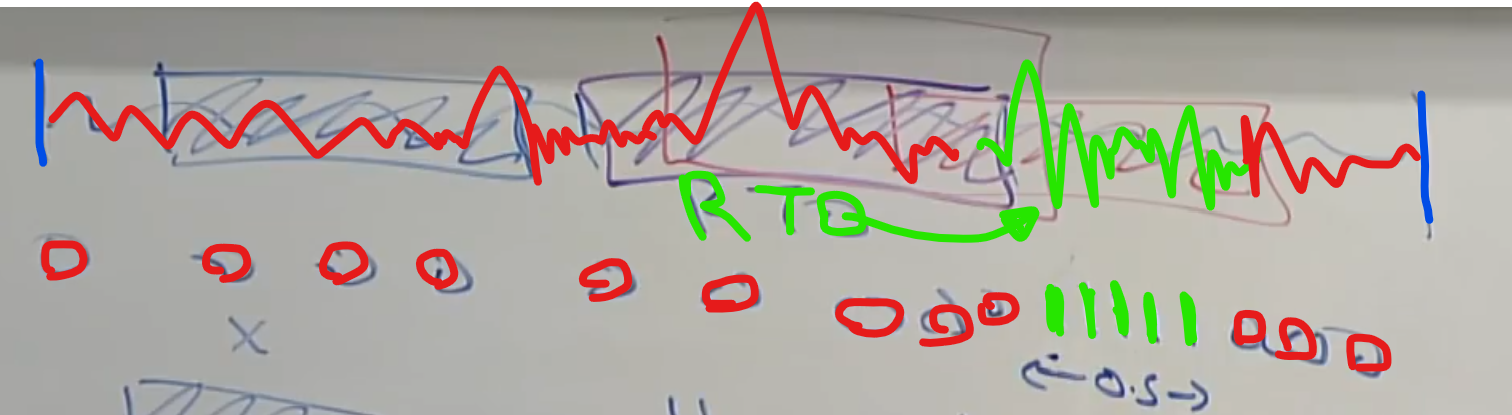 RTD
0 0 0 0 0 0 0 0 0 1 1 1 1 1 0 0 0
X
←0.5→